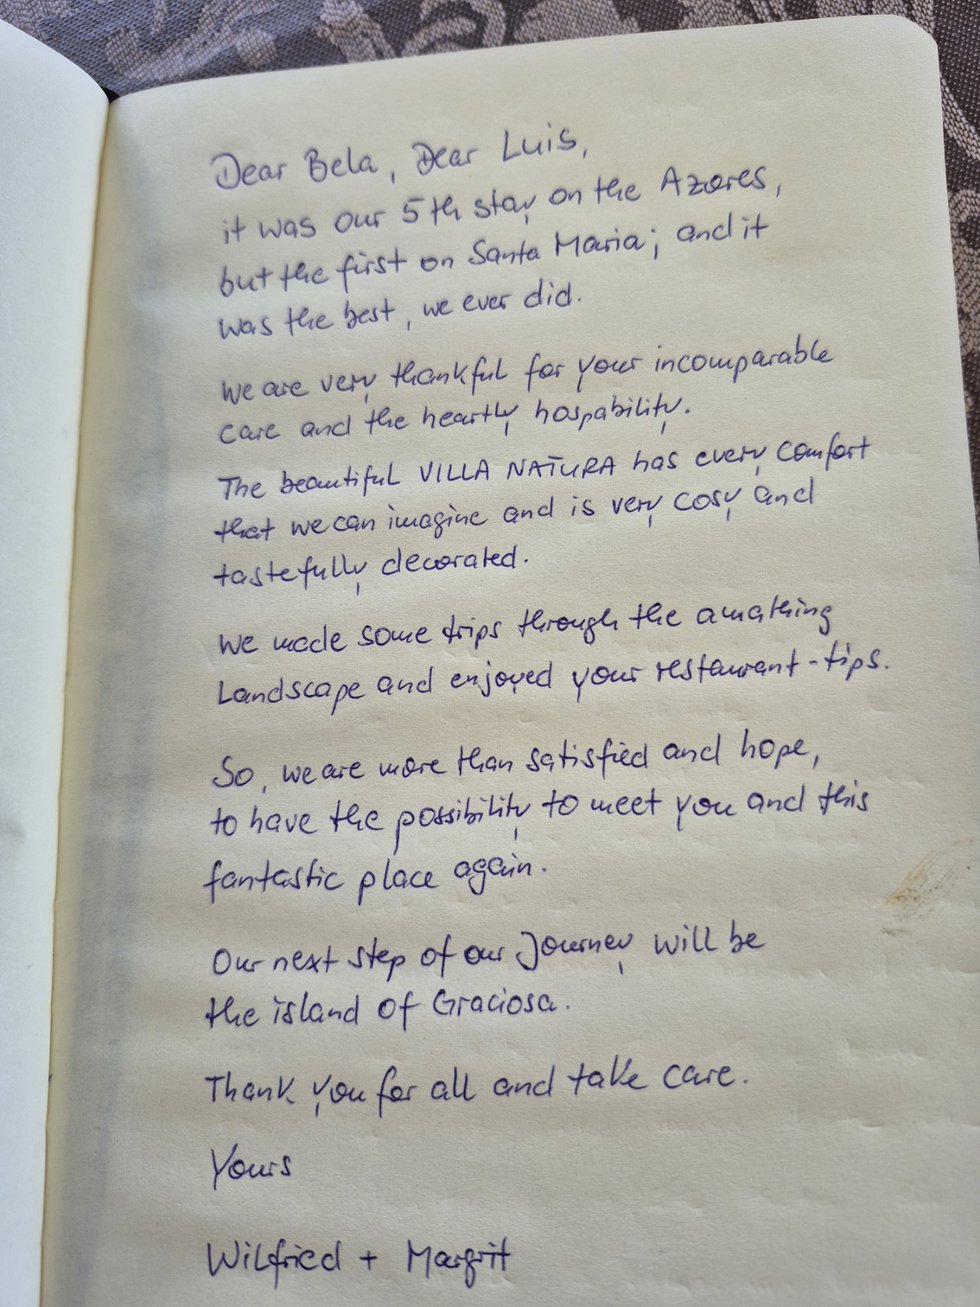 Dear Bela, Dear Luis,
it was our 5th stay on the Azores,
but the first on Santa Maria; and it
was the best, we ever did.
We are very thankful for your incomparable
care and the heartly hospability.
The beautiful VILLA NATURA has every comfort
that we can imagine and is very cosy and
tastefully decorated.
We made some trips through the amathing
Landscape and enjoyed your restaurant-tips.
So, we are more than satisfied and hope,
to have the possibility to meet you and this
fantastic place again.
Our next step of our Journey will be
the island of Graciosa.
Thank you for all and take care.
Yours
Wilfried + Margrit